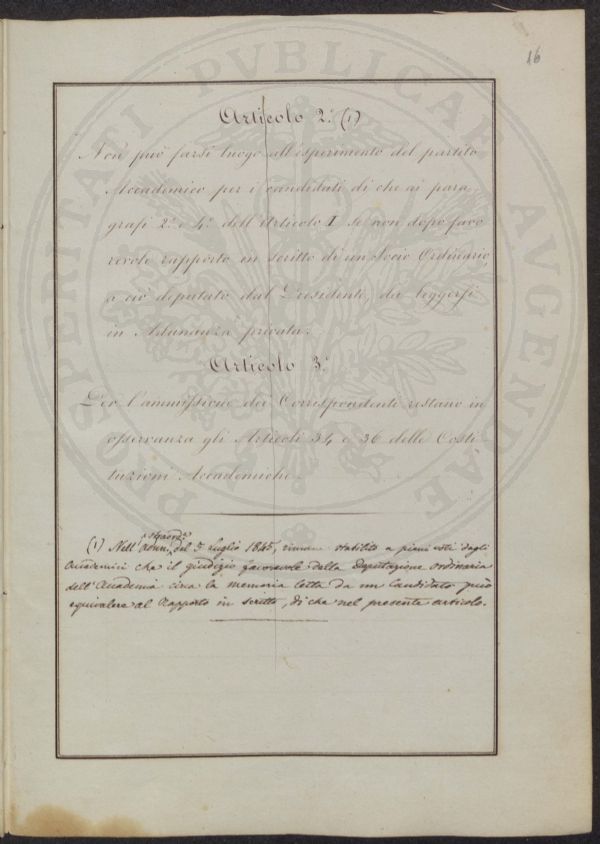 16
Articolo 2.° (1)
Non può farsi luogo all'esperimento del partito
Accademico per i candidati di che ai para
grafi 2.° e 4.° dell'Articolo I se non dopo favo
revole rapporto in scritto di un Socio Ordinario
a ciò deputato dal Presidente, da leggersi
in Adunanza privata.
Articolo 3.°
Per l'ammissione dei Corrispondenti restano in
osservanza gli Articoli 34 e 36 delle Costi
tuzioni Accademiche.
straord.a
(1) Nell'Adun. del 5 Luglio 1845, venne stabilito a pieni voti dagli
Accademici che il giudizio favorevole della Deputazione ordinaria
dell'Accademia circa la memoria letta da un Candidato può
equivalere al Rapporto in scritto, di che nel presente articolo.
PROSPERITATI PVBLICAE AVGENDAE